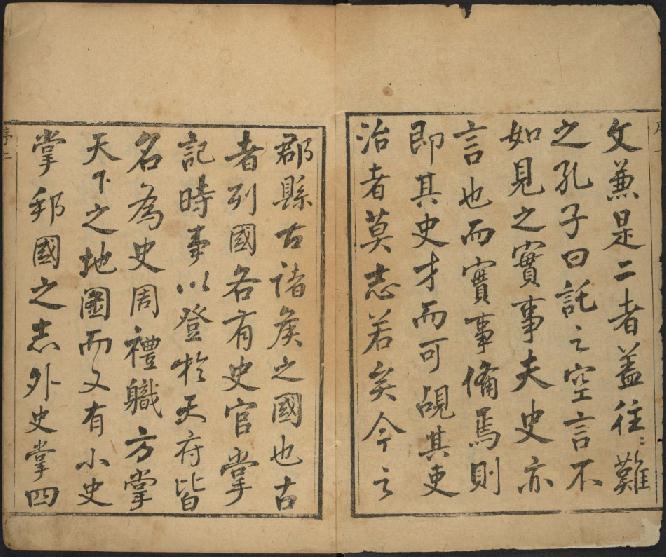 文兼是二者蓋往〻難
之孔子曰託之空言不
如見之實事夫史亦
言也而實事備焉則
即其史才而可覘其吏
治者莫志若矣今之
郡縣古諸矦之國也古
者列國各有史官掌
記時事以登於天府皆
名為史周禮職方掌
天下之地圖而又有小史
掌邦國之志外史掌四
序二